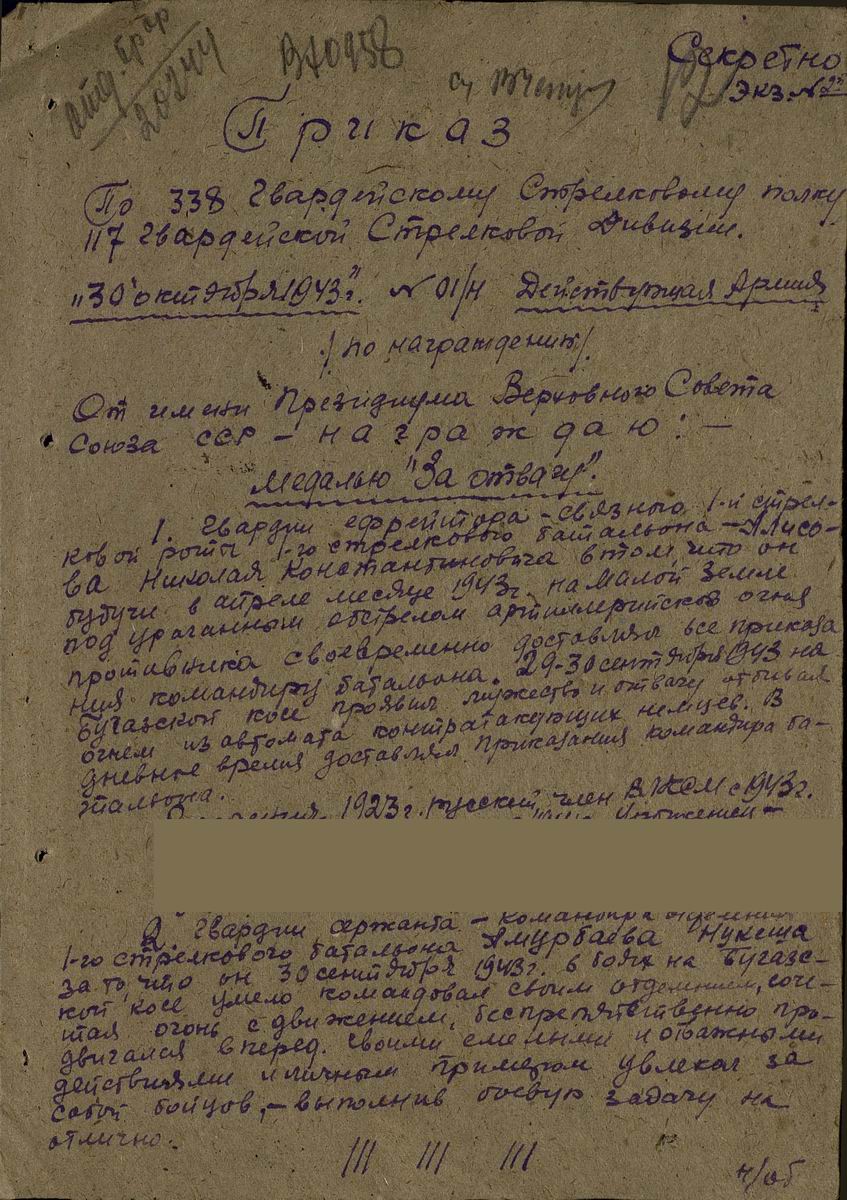 В70958
20244
Секретно
Экз. № 2
Приказ
По 338 Гвардейскому Стрелковому полку
117 Гвардейской Стрелковой Дивизии.
"30" октября 1943 г. № 01/Н Действующая Армия
/по награждению/
От имени Президиума Верховного Совета
Союза ССР – награждаю: –
Медалью "За отвагу".
1. Гвардии ефрейтора – связного 1-й стрел-
ковой роты 1-го стрелкового батальона – Алисо-
ва Николая Константиновича в том что он
будучи в апреле месяце 1943 г. на Малой Земле
под ураганным обстрелом артиллерийского огня
противника своевременно доставлял все приказа
ния командиру батальона. 29-30 сентября 1943 на
Бугазской косе проявил мужество и отвагу отбивая
огнем из автомата контратакующих немцев. В
дневное время доставлял приказания командира ба-
тальона.
1923 г. русский, член ВЛКСМ с 1943 г.
2. Гвардии сержанта – командира отделения
1-го стрелкового батальона Амурбаева Нукеша
за то, что он 30 сентября 1943 г. в боях на Бугазс-
кой косе умело командовал своим отделением, соче-
тая огонь с движением, беспрепятственно про-
двигался вперед. Своими смелыми и отважными
действиями и личным примером увлекал за
собой бойцов, – выполнив боевую задачу на
отлично.
/// /// ///
н/об